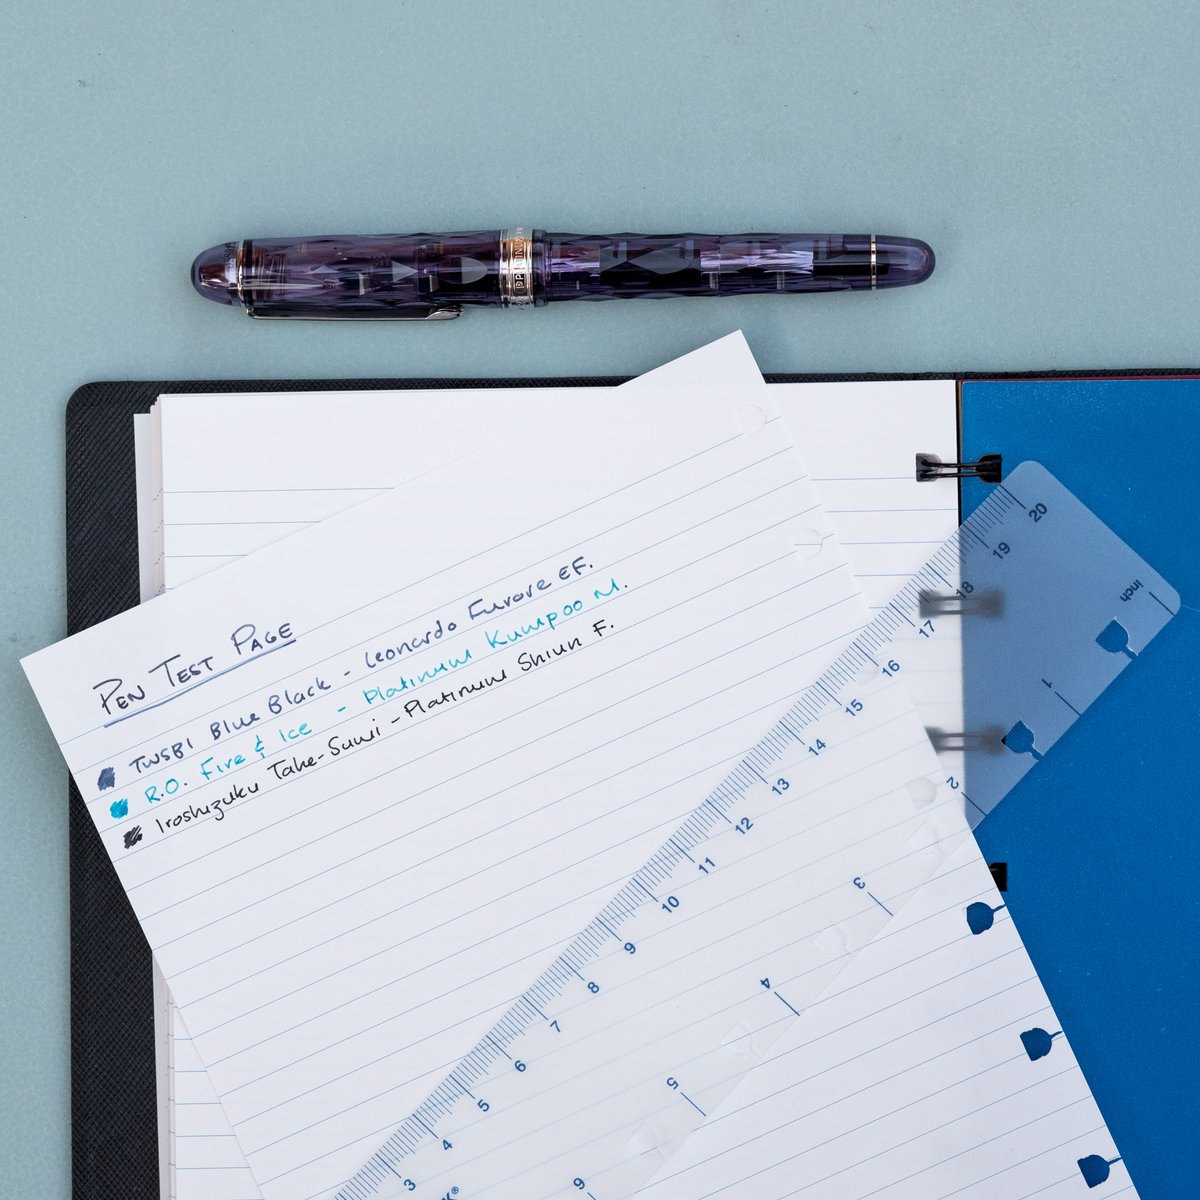 PEN TEST PAGE
TWSBI Blue Black - Leonardo Furore EF.
R.O. Fire & Ice - Platinum Kumpoo M.
Iroshizuku Take-Sumi - Platinum Shiun F.
20
19
18
17
16
15
14
13
12
11
10
9
8
7
6
5
4
3
inch
1
2
3
4
5
6